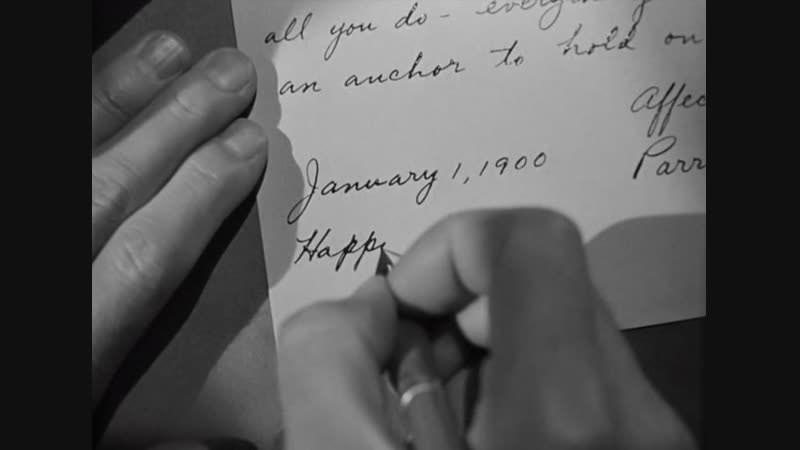 all you do - everything
an anchor to hold on
Affec
January 1, 1900
Parr
Happ